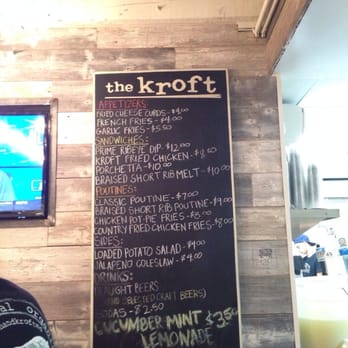 the kroft
APPETIZERS:
FRIED CHEESE CURDS - $4.00
FRENCH FRIES - $4.00
GARLIC FRIES - $5.50
SANDWICHES:
PRIME RIBEYE DIP - $12.00
KROFT FRIED CHICKEN - $8.50
PORCHETTA - $10.00
BRAISED SHORT RIB MELT - $10.00
POUTINES:
CLASSIC POUTINE - $7.00
BRAISED SHORT RIB POUTINE - $9.00
CHICKEN POT-PIE FRIES - $8.00
COUNTRY FRIED CHICKEN FRIES - $8.00
SIDES:
LOADED POTATO SALAD - $4.00
JALAPENO COLESLAW - $4.00
DRINKS:
DRAUGHT BEERS
CRAFT BEERS)
SODAS - $2.50
CUCUMBER MINT $3.50
LEMONADE